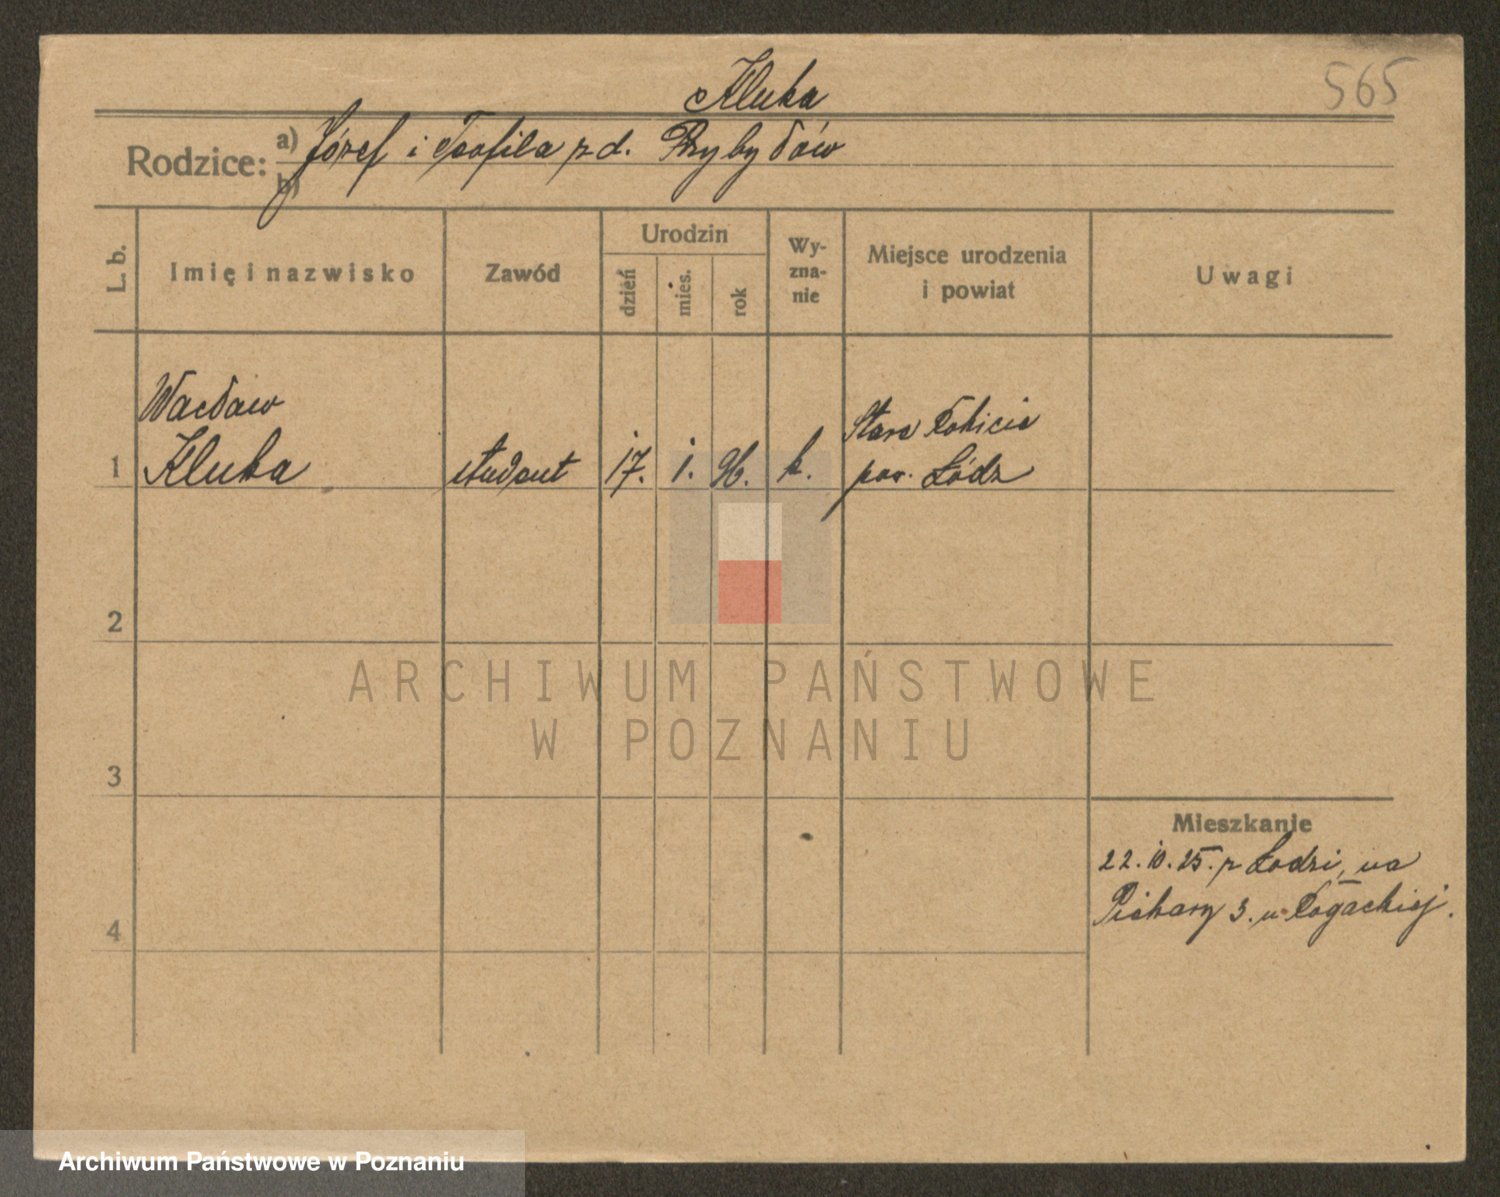 565
Kluka
Rodzice: a) Józef i Teofila z d. Przybyłów
b)
L. b.
Imię i nazwisko
Zawód
Urodzin
dzień
mies.
rok
Wy-
zna-
nie
Miejsce urodzenia
i powiat
Uwagi
Wacław
1 Kluka student 17. 1. 96. k. Stare
pow. Łódz
2
3
4
Mieszkanie
22.10.25. z Łodzi, na
Piekary 3. u
ARCHIWUM PAŃSTWOWE
W POZNANIU
Archiwum Państwowe w Poznaniu